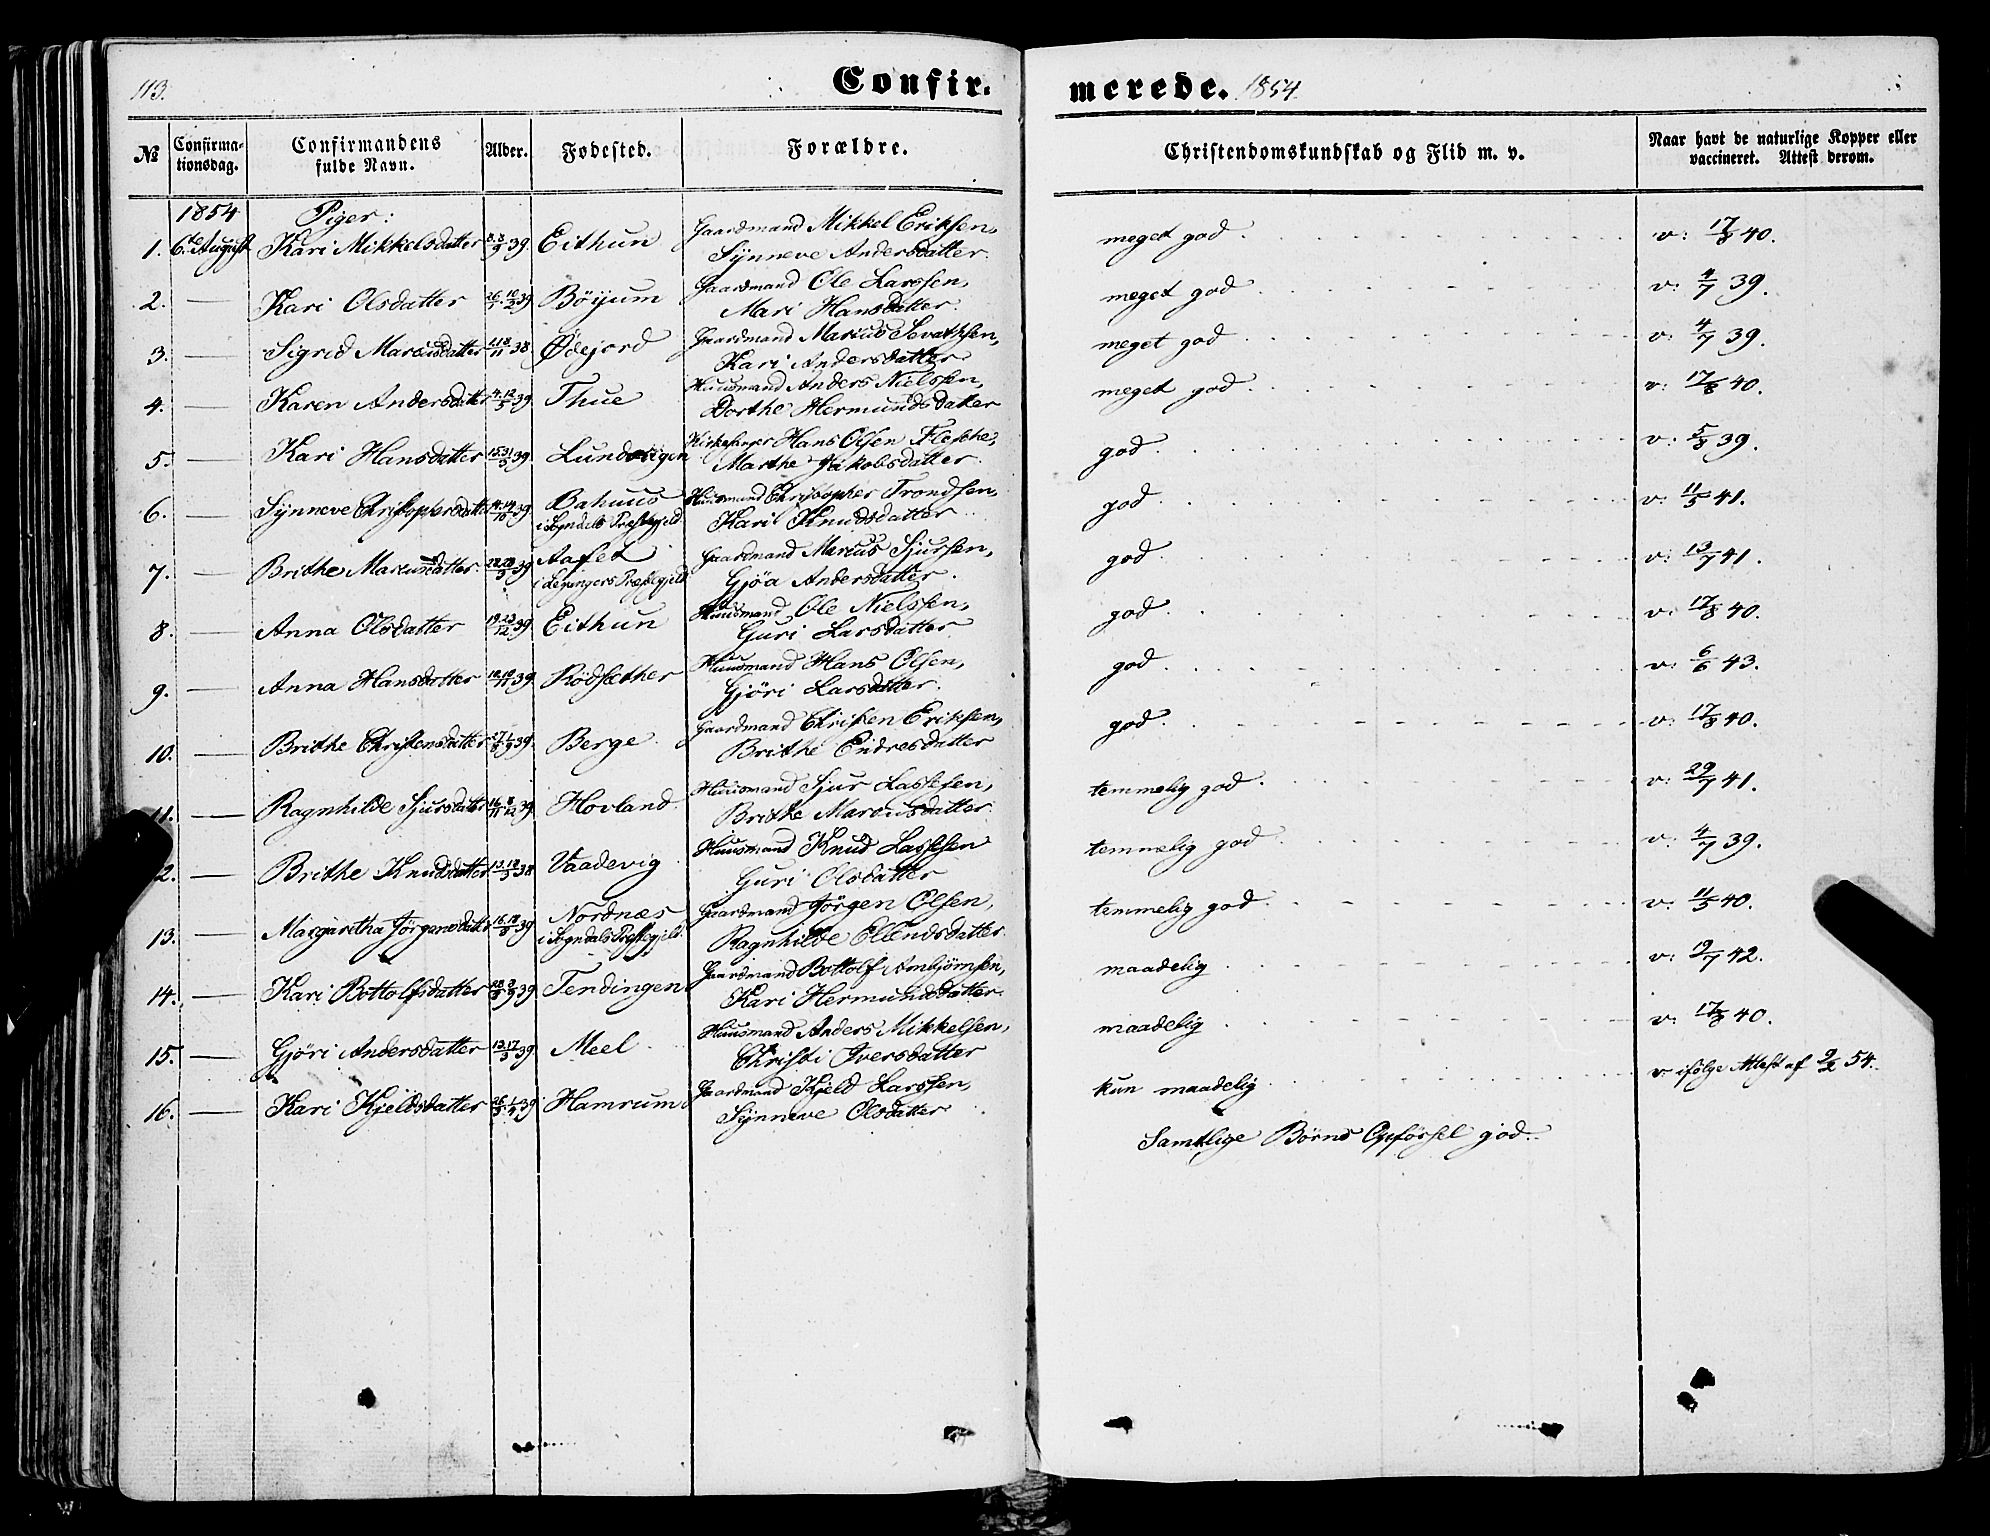 113.
Confir-
merede. 1854
№
Confirma-
tionsdag.
Confirmandens
fulde Navn.
Alder.
Fødested.
Forældre.
Christendomskundskab og Flid m. v.
Naar havt de naturlige Kopper eller
vaccineret. Attest derom.
1854 Piger:
1. 6te August Kari Mikkelsdatter 39 Eithun Gaardmand Mikkel Eriksen, meget god v: 17/8 40.
Synneve Andersdatter.
2. — Kari Olsdatter 39 Böyum Gaardmand Ole Larssen, meget god v: 4/7 39.
Mari Hansdatter.
3. — Sigrid Marcusdatter 38 Ødejord Gaardmand Marcus meget god v: 4/7 39.
Kari Andersdatter
4. — Karen Andersdatter 39 Thue Huusmand Anders Nielssen, meget god v: 17/8 40.
Dorthe Hermundsdatter
5. — Kari Hansdatter 39 Kirkesanger Hans Olsen Flesche, god v: 5/8 39.
Marthe Jakobsdatter.
6. — Synneve Christophersdatter 39 Bahuus Huusmand Christopher Trondsen, god v: 11/5 41.
i Sogndals Præstegjeld Kari Knudsdatter
7. — Brithe Marcusdatter 39 Aafet Gaardmand Marcus Sjursen, god v: 13/7 41.
i Leyangers Præstegjeld Gjöa Andersdatter.
8. — Anna Olsdatter 39 Eithun Huusmand Ole Nielssen, god v: 17/8 40.
Guri Larsdatter
9. — Anna Hansdatter 39 Rödsæther Huusmand Hans Olsen, god v: 6/6 43.
Gjöri Larsdatter.
10. — Brithe Christensdatter 39 Berge Gaardmand Christen Eriksen, god v: 17/8 40.
Brithe Endresdatter
11. — Ragnhilde Sjursdatter 39 Hovland Huusmand Sjur Lassesen, temmelig god v: 29/7 41.
Brithe Marcusdatter.
2. — Brithe Knudsdatter 38 Vaadevig Huusmand Knud Lassesen temmelig god v: 4/7 39.
Guri Olsdatter
13. — Margaretha Jörgensdatter 39 Nordnæs Gaardmand Jörgen Olsen, temmelig god v: 11/5 40.
i Sogndals Præstegjeld Ragnhilde Ellendsdatter
14. — Kari Bottolfsdatter 39 Tendingen Gaardmand Bottolf Arnbjörnsen, maadelig v: 19/7 42.
Kari Hermundsdatter
15. — Gjöri Andersdatter 39 Meel Huusmand Anders Mikkelsen, maadelig v: 17/8 40.
Christi Iversdatter
16. — Kari Kjeldsdatter 39 Hamrum Gaardmand Kjeld Larssen, kun maadelig v: ifölge Attest af 9/2 54.
Synneve Olsdatter
Samtlige Börns Opförsel god.